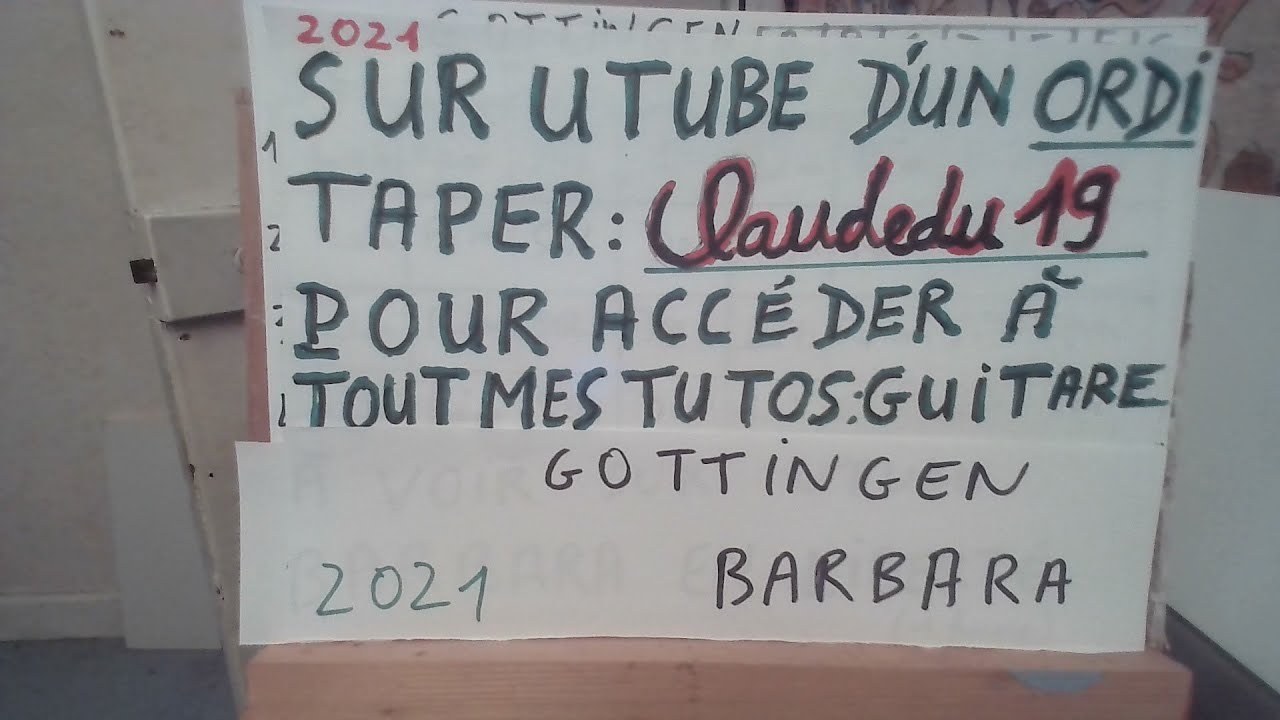 2021 GOTTINGEN
SUR UTUBE D'UN ORDI
1
TAPER: Claudedu 19
2
POUR ACCÉDER À
TOUT MES TUTOS: GUITARE
GOTTINGEN
2021 BARBARA